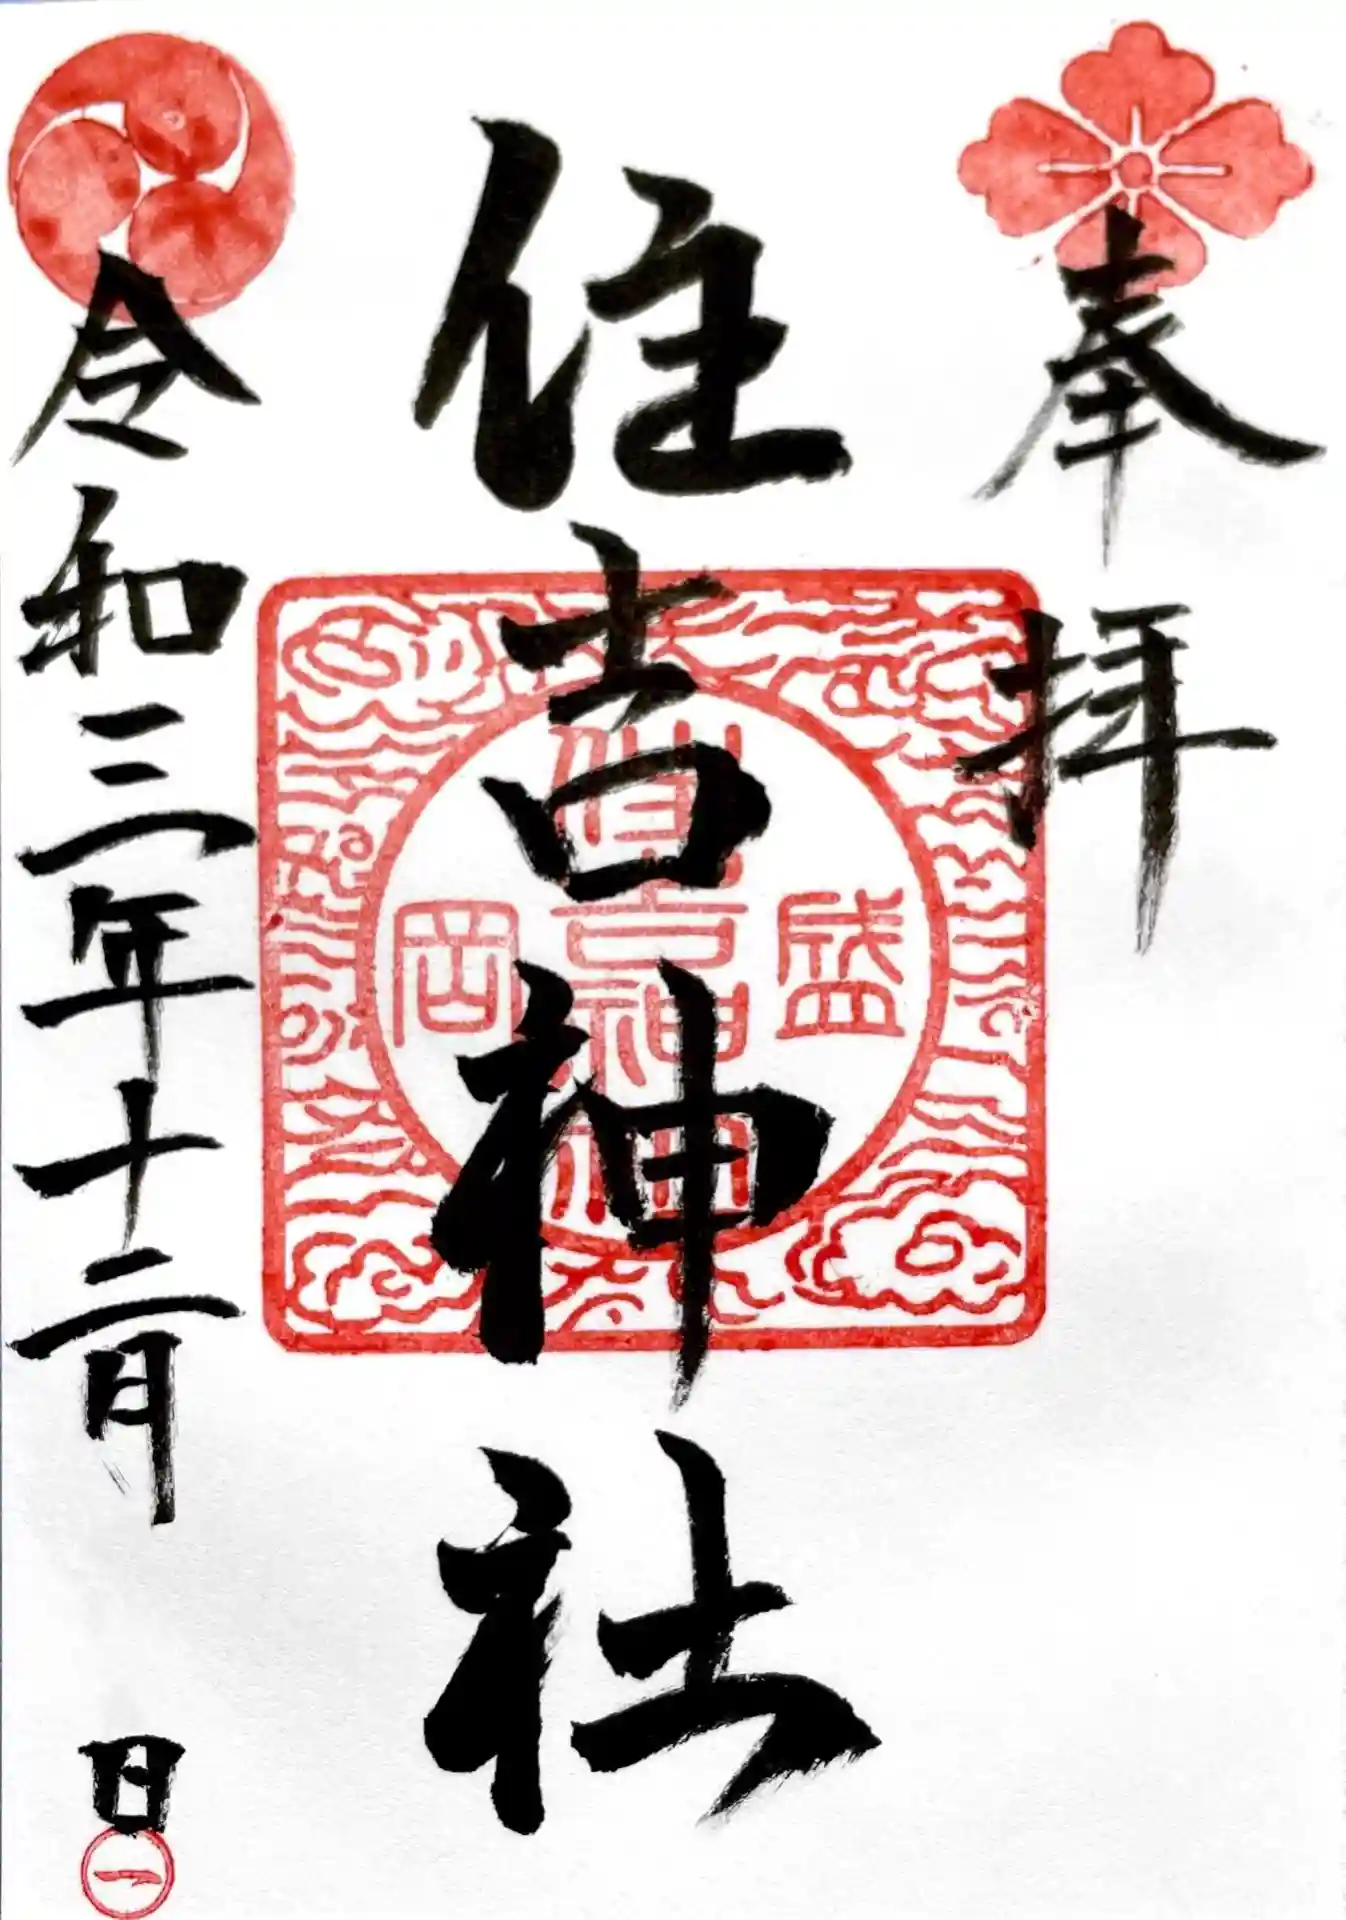 奉拝
住吉神社
盛
住吉神社
岡
令和三年十二月 日
一